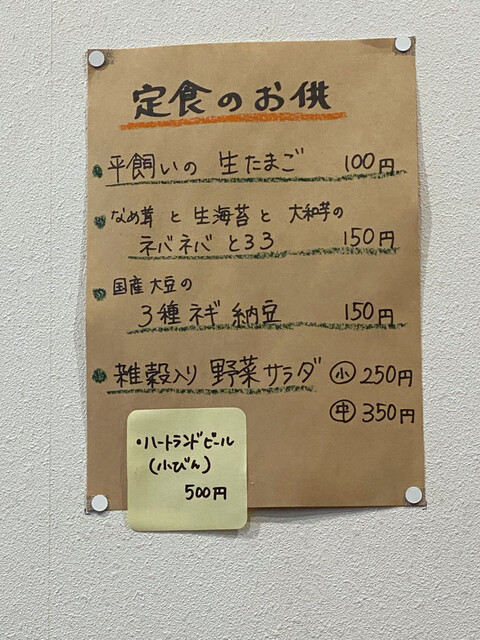 定食のお供
・平飼いの 生たまご 100円
・なめ茸と生海苔と 大和芋の
ネバネバとろろ 150円
・国産大豆の
3種ネギ納豆 150円
・雑穀入り 野菜サラダ ㊙小 250円
㊥ 350円
・ハートランドビール
(小びん)
500円